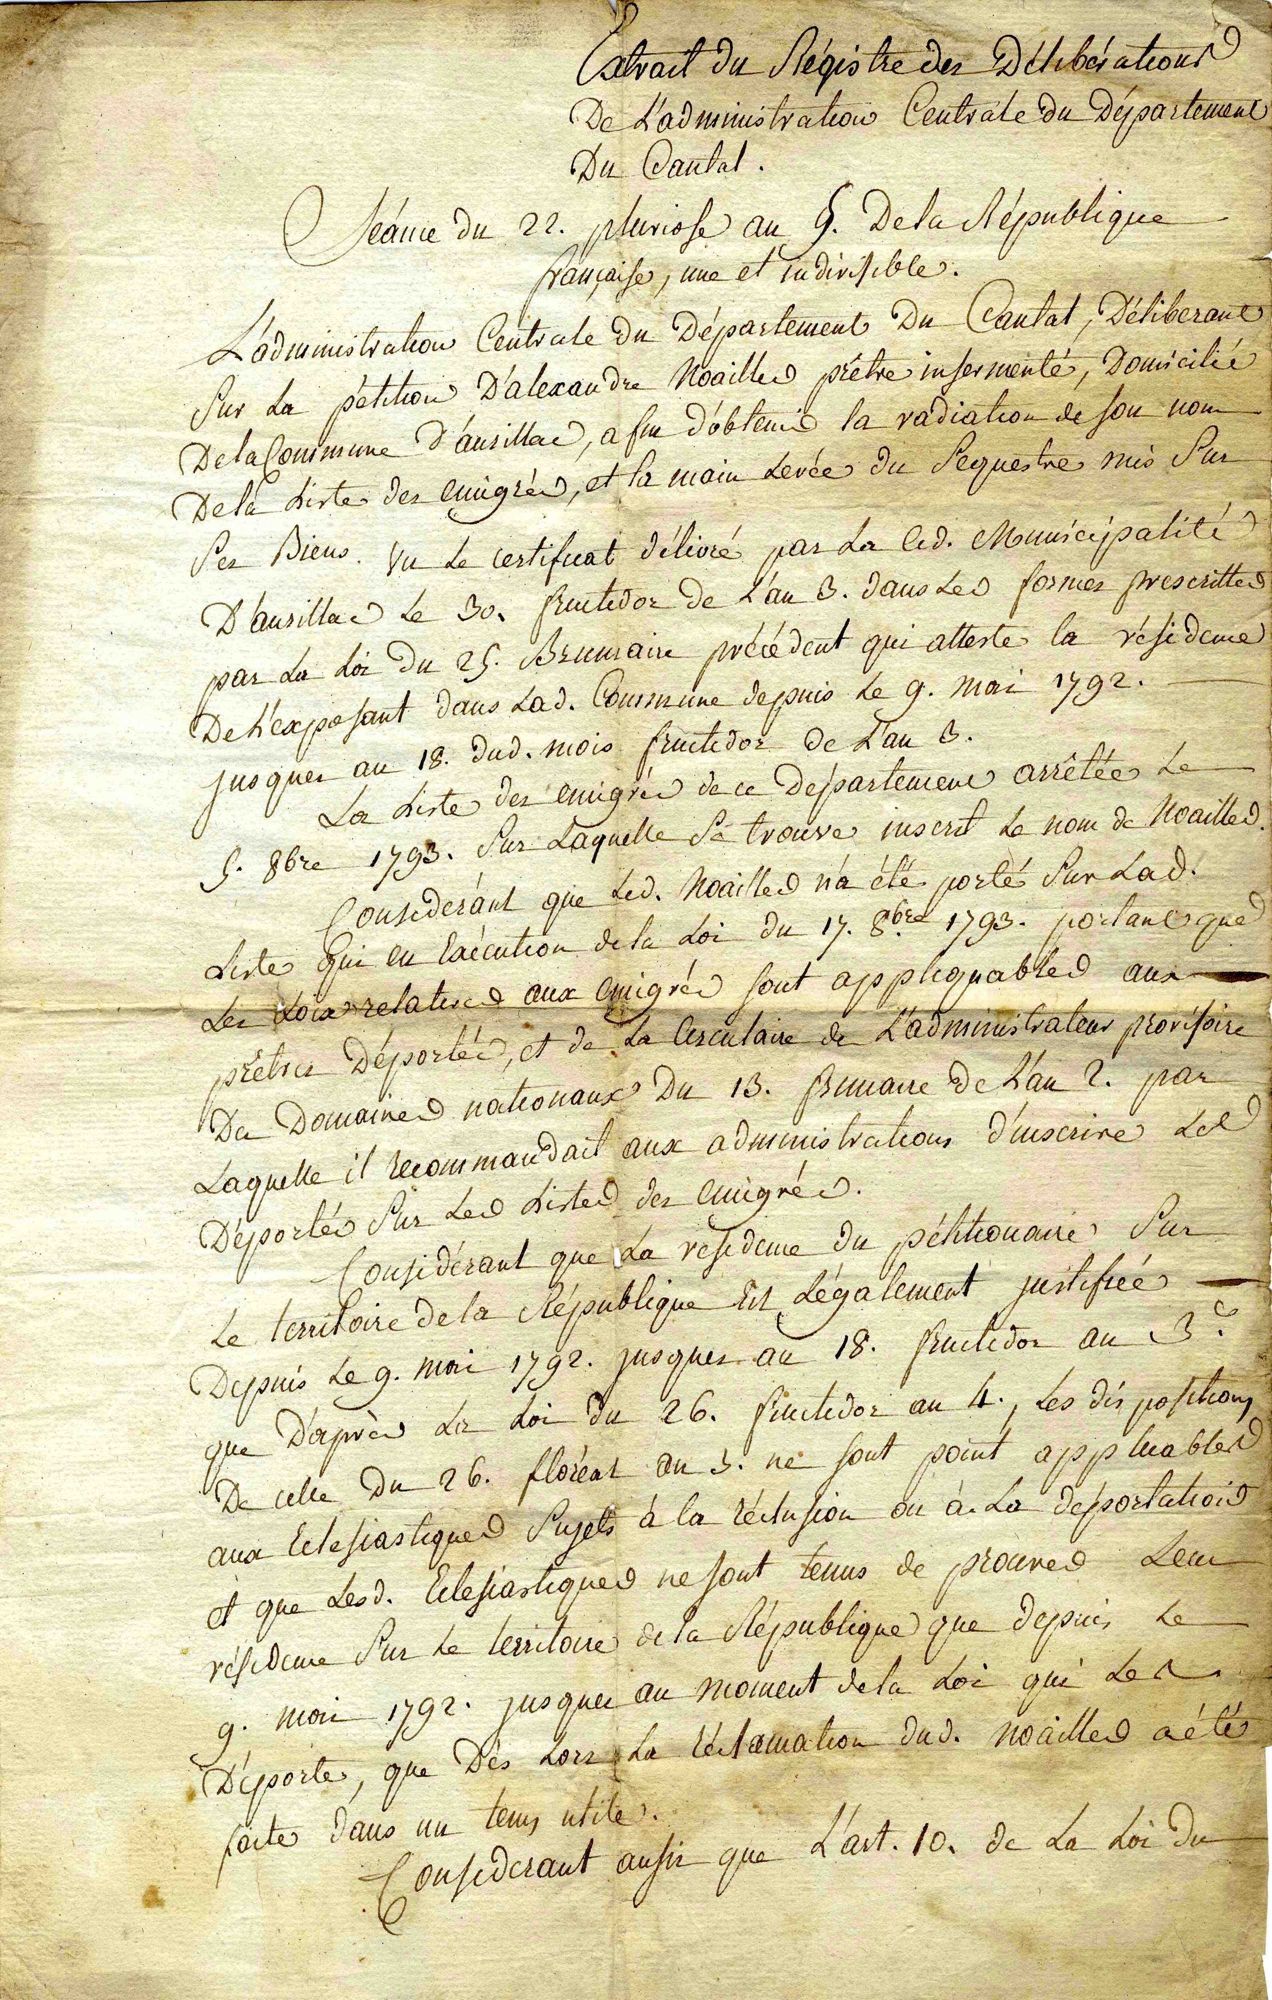 Extrait du Régistre des Délibérations
De L'administration Centrale du Département
Du Cantal.
Séance du 22. pluviose an 5. De la République
française, une et indivisible.
L'administration Centrale du Département Du Cantal, Déliberant
Sur La pétition D'alexandre Noailles prêtre insermenté, Domicilié
De la Commune D'aurillac, afin d'obtenir la radiation de son nom
De la Liste des emigrés, et la main Levée du Sequestre mis Sur
Ses Biens. Vu Le certificat délivré par La Cid. Municipalité
D'aurillac Le 30. fructidor de L'an 3. dans Les formes prescrittes
par La Loi Du 25. Brumaire précédent qui atteste la résidence
De L'exposant dans Lad. Commune depuis Le 9. mai 1792.
jusques au 18. dud. mois fructidor de L'an 3.
La Liste des emigrés de ce Département arrêtée Le
5. 8bre 1793. Sur Laquelle Se trouve inscrit Le nom de Noailles.
Considerant que Led. Noailles n'a été porté Sur Lad.
Liste qu'en Exécution de la Loi du 17. 8bre 1793. portant que
Les Loix relatives aux emigrés sont appliquables aux
prêtres Déportés, et de La Circulaire de L'administrateur provisoire
Des Domaines nationaux Du 13. frimaire de L'an 2. par
Laquelle il recommandait aux administrations d'inscrire Les
Déportés Sur Les Listes des emigrés.
Considérant que La residence du pétitionaire Sur
Le territoire de la République Est Légalement justifiée
Depuis Le 9. mai 1792. jusques au 18. fructidor an 3.e
que D'après La Loi du 26. fructidor an 4., Les dispositions
De celle Du 26. floréal an 3. ne sont point applicables
aux Eclesiastiques Sujets à la réclusion ou à La déportation
et que Lesd. Eclesiastiques ne sont tenus de prouver Leur
résidence Sur Le territoire de la République que depuis Le
9. mai 1792. jusques au moment de la Loi qui Les
Déporte, que Dès Lors La réclamation dud. Noailles a été
faite dans un tems utile.
Considerant aussi que L'art. 10. de La Loi Du